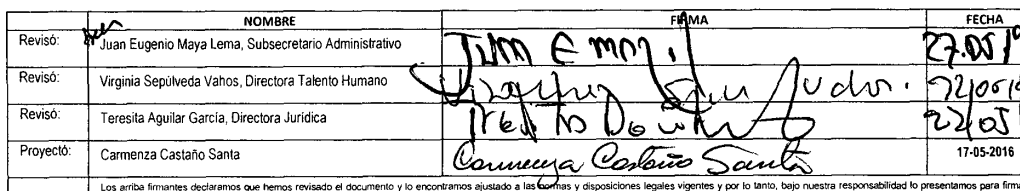 NOMBRE FIRMA FECHA
Revisó: Juan Eugenio Maya Lema, Subsecretario Administrativo
Revisó: Virginia Sepúlveda Vahos, Directora Talento Humano
Revisó: Teresita Aguilar García, Directora Jurídica
Proyectó: Carmenza Castaño Santa Carmenza Castaño Santa 17-05-2016
Los arriba firmantes declaramos que hemos revisado el documento y lo encontramos ajustado a las normas y disposiciones legales vigentes y por lo tanto, bajo nuestra responsabilidad lo presentamos para firma